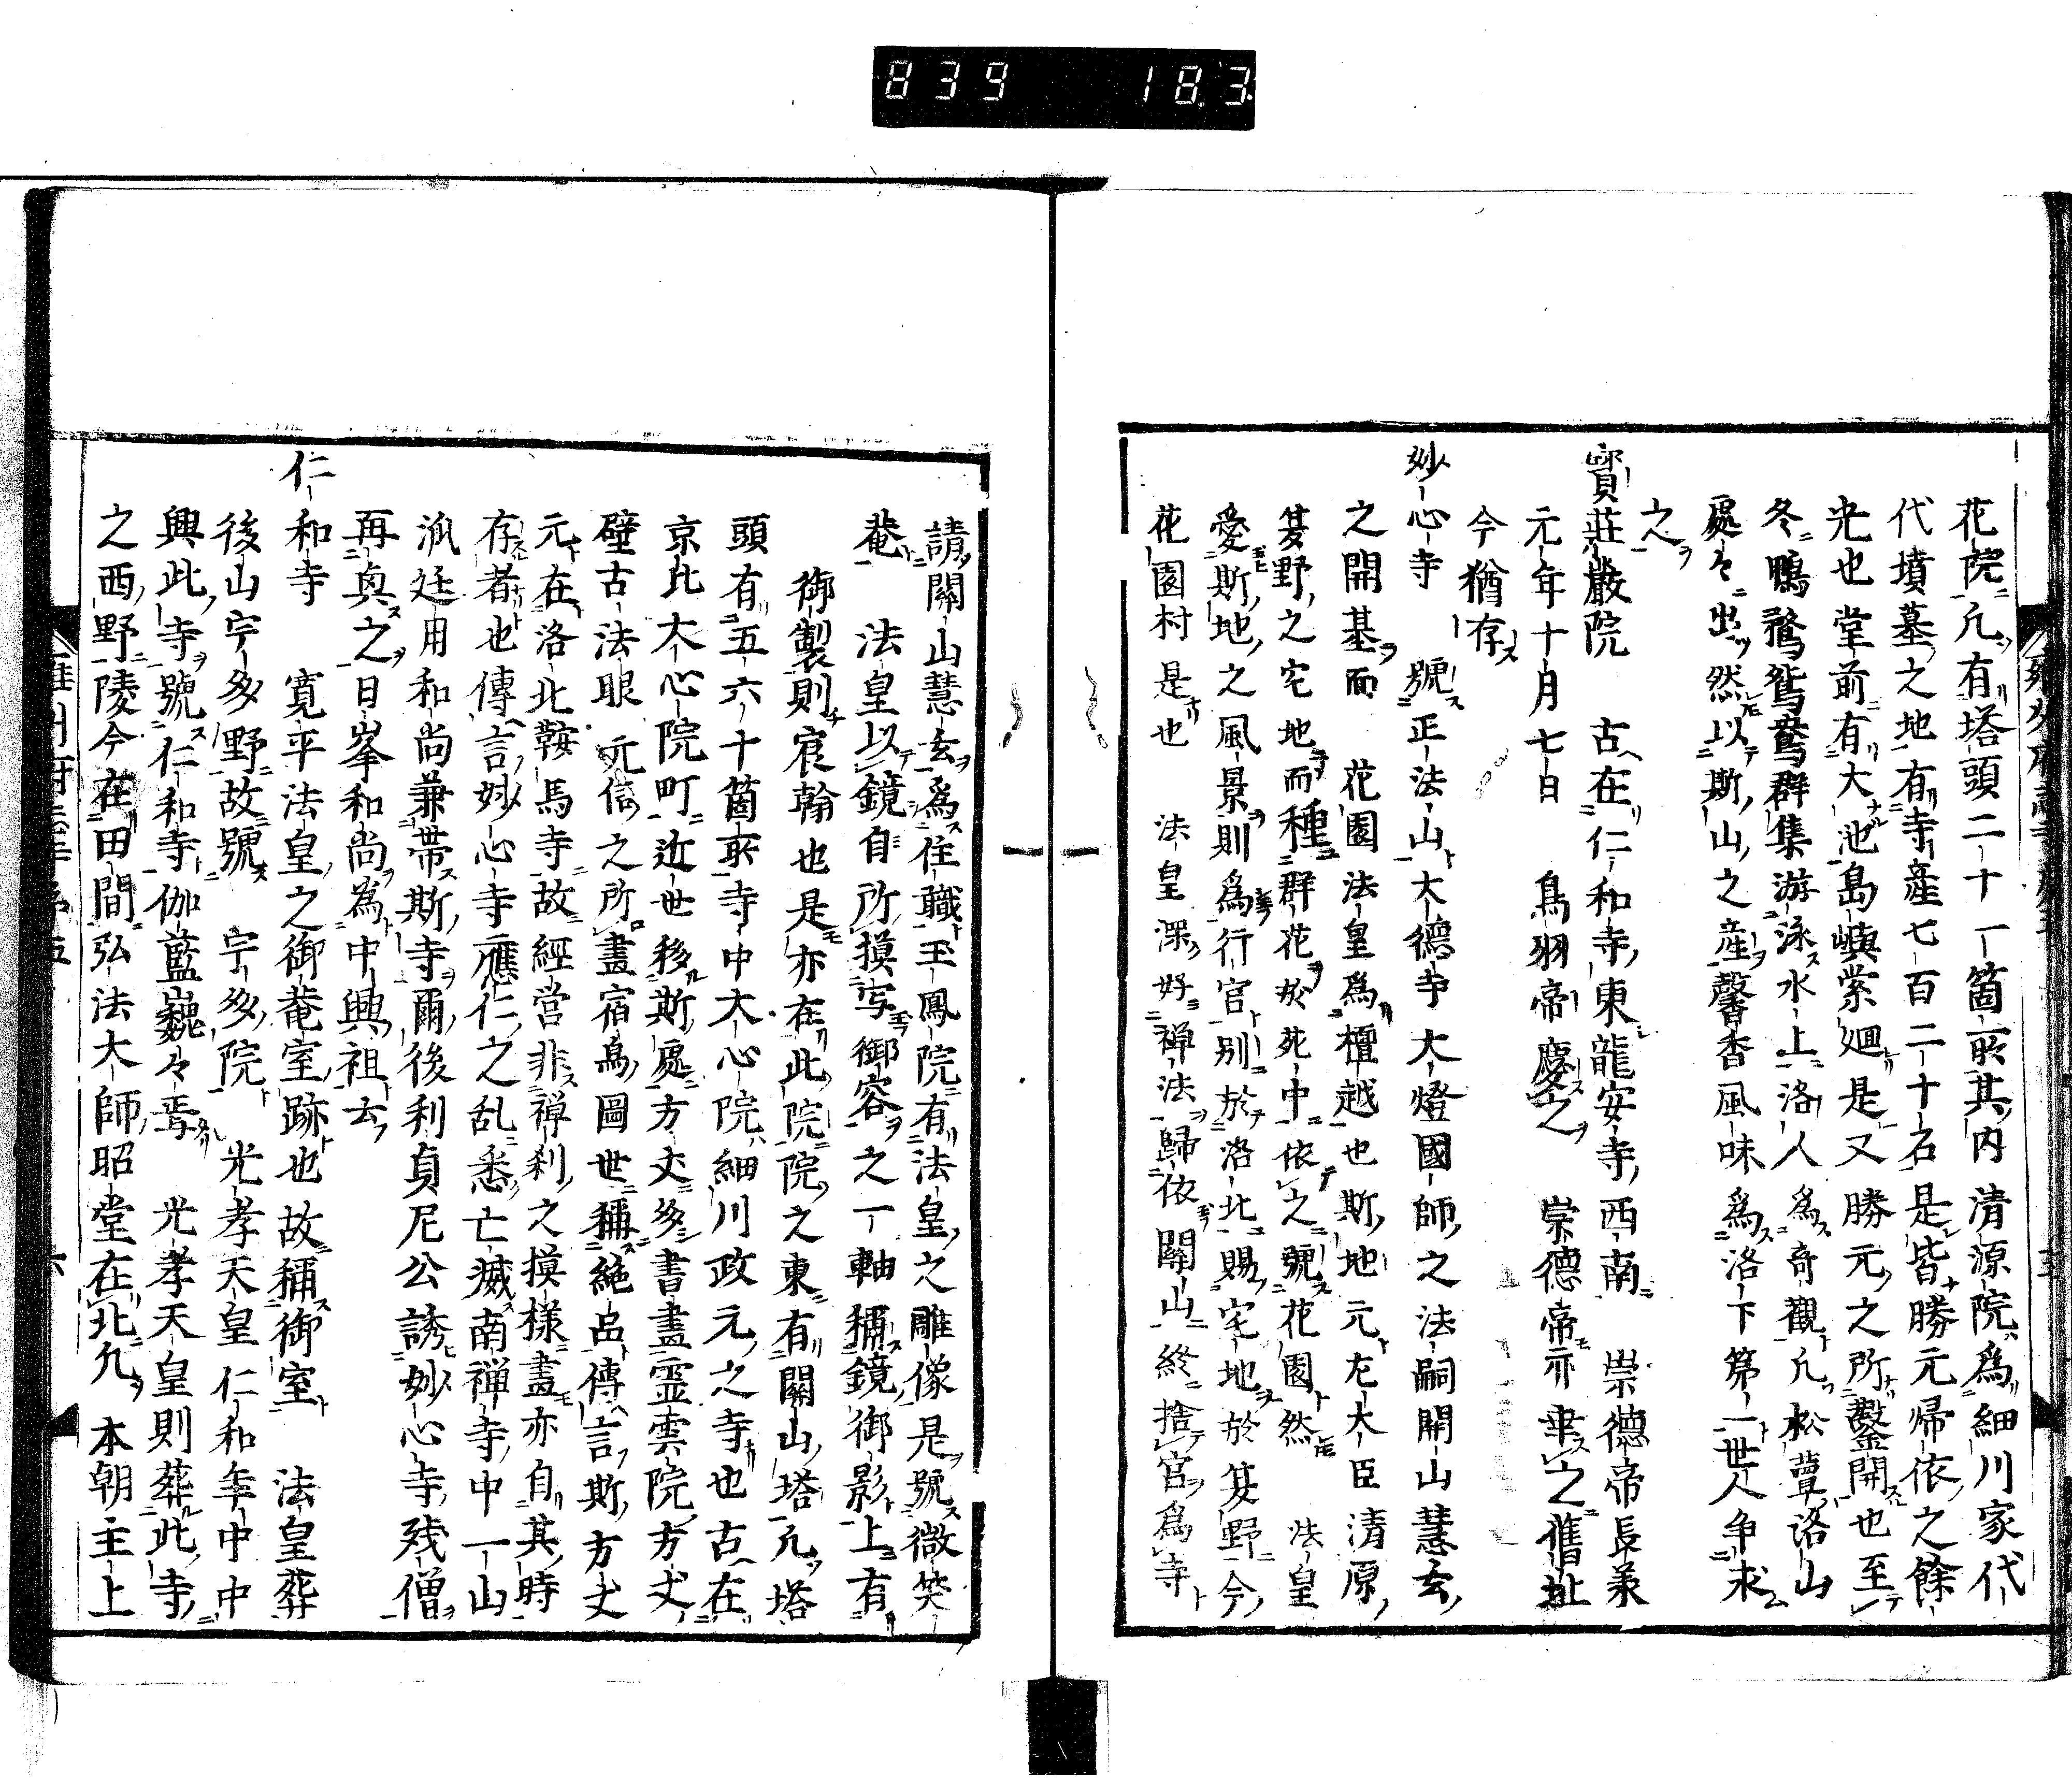 839 18.3
花院凡有塔頭二十一箇所其内清源院爲細川家代
代墳墓之地有寺産七百二十石是皆勝元帰依之餘
光也堂前有大池島嶼縈廻是又勝元之所鑿開也至
冬鴨鶩鴛鴦群集游泳水上洛人爲奇觀凡松蕈洛山
處々出然以斯山之産馨香風味爲洛下第一世人争求
之
寳荘嚴院 古在仁和寺東龍安寺西南 崇德帝長承
元年十月七日 鳥羽帝慶之 崇德帝亦幸之舊址
今猶存
妙心寺 號正法山大德寺大燈國師之法嗣開山慧玄
之開基而 花園法皇爲檀越也斯地元左大臣清原
夏野之宅地而種群花於苑中依之號花園然 法皇
愛斯地之風景則爲行宮别於洛北賜宅地於夏野今
花園村是也 法皇深好禅法歸依關山終捨宮爲寺
請關山慧玄爲住職玉鳳院有法皇之雕像是號微笑
菴 法皇以鏡自所摸写御容之一軸稱鏡御影上有
御製則宸翰也是亦在此院院之東有關山塔凡塔
頭有五六十箇所寺中大心院細川政元之寺也古在
京北大心院町近世移斯處方丈多書畫霊雲院方丈
壁古法眼元信之所畫宿鳥圖世稱絶品傳言斯方丈
元在洛北鞍馬寺故經営非禅刹之摸様畫亦自其時
存者也傳言妙心寺應仁之乱悉亡滅南禅寺中一山
派廷用和尚兼帯斯寺爾後利貞尼公誘妙心寺残僧
再興之日峯和尚為中興祖云
仁和寺 寛平法皇之御菴室跡也故稱御室 法皇葬
後山宇多野故號 宇多院 光孝天皇仁和年中中
興此寺號仁和寺伽藍巍々焉 光孝天皇則葬此寺
之西野陵今在田間弘法大師昭堂在北凡 本朝主上